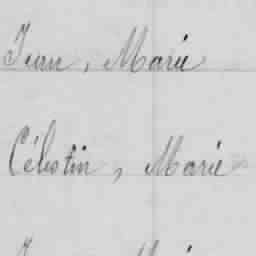 Jean, Marie
Célestin, Marie